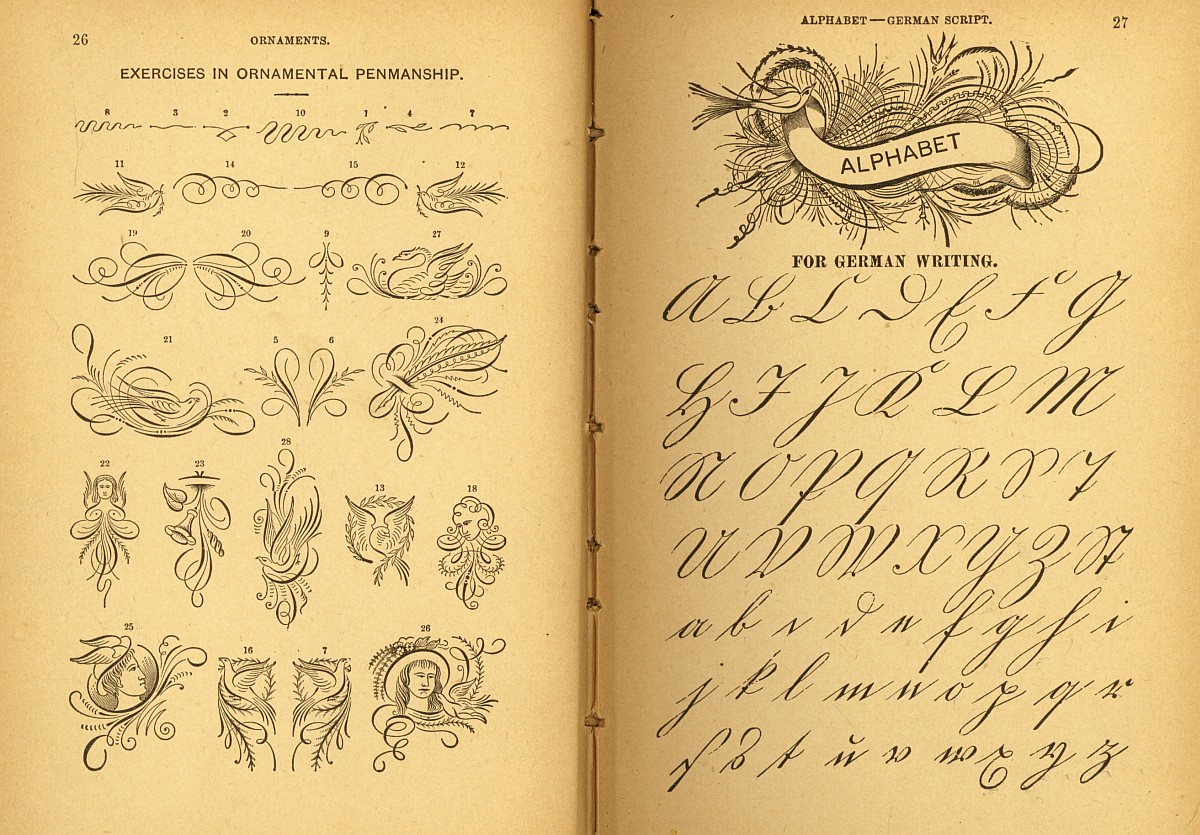 26
ORNAMENTS.
EXERCISES IN ORNAMENTAL PENMANSHIP.
8 3 2 10 1 4 7
11 14 15 12
19 20 9 27
21 5 6 24
22 23 28 13 18
25 16 7 26
ALPHABET—GERMAN SCRIPT.
27
ALPHABET
FOR GERMAN WRITING.
A B C D E F G
H I J K L M
N O P Q R S T
U V W X Y Z St
a b c d e f g h i
j k l m n o p q r
ſ s t u v w x y z